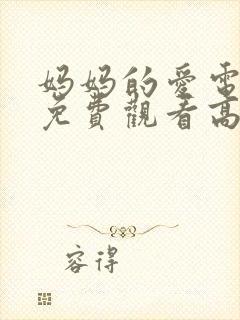 妈妈的爱電
免費觀看高
容得